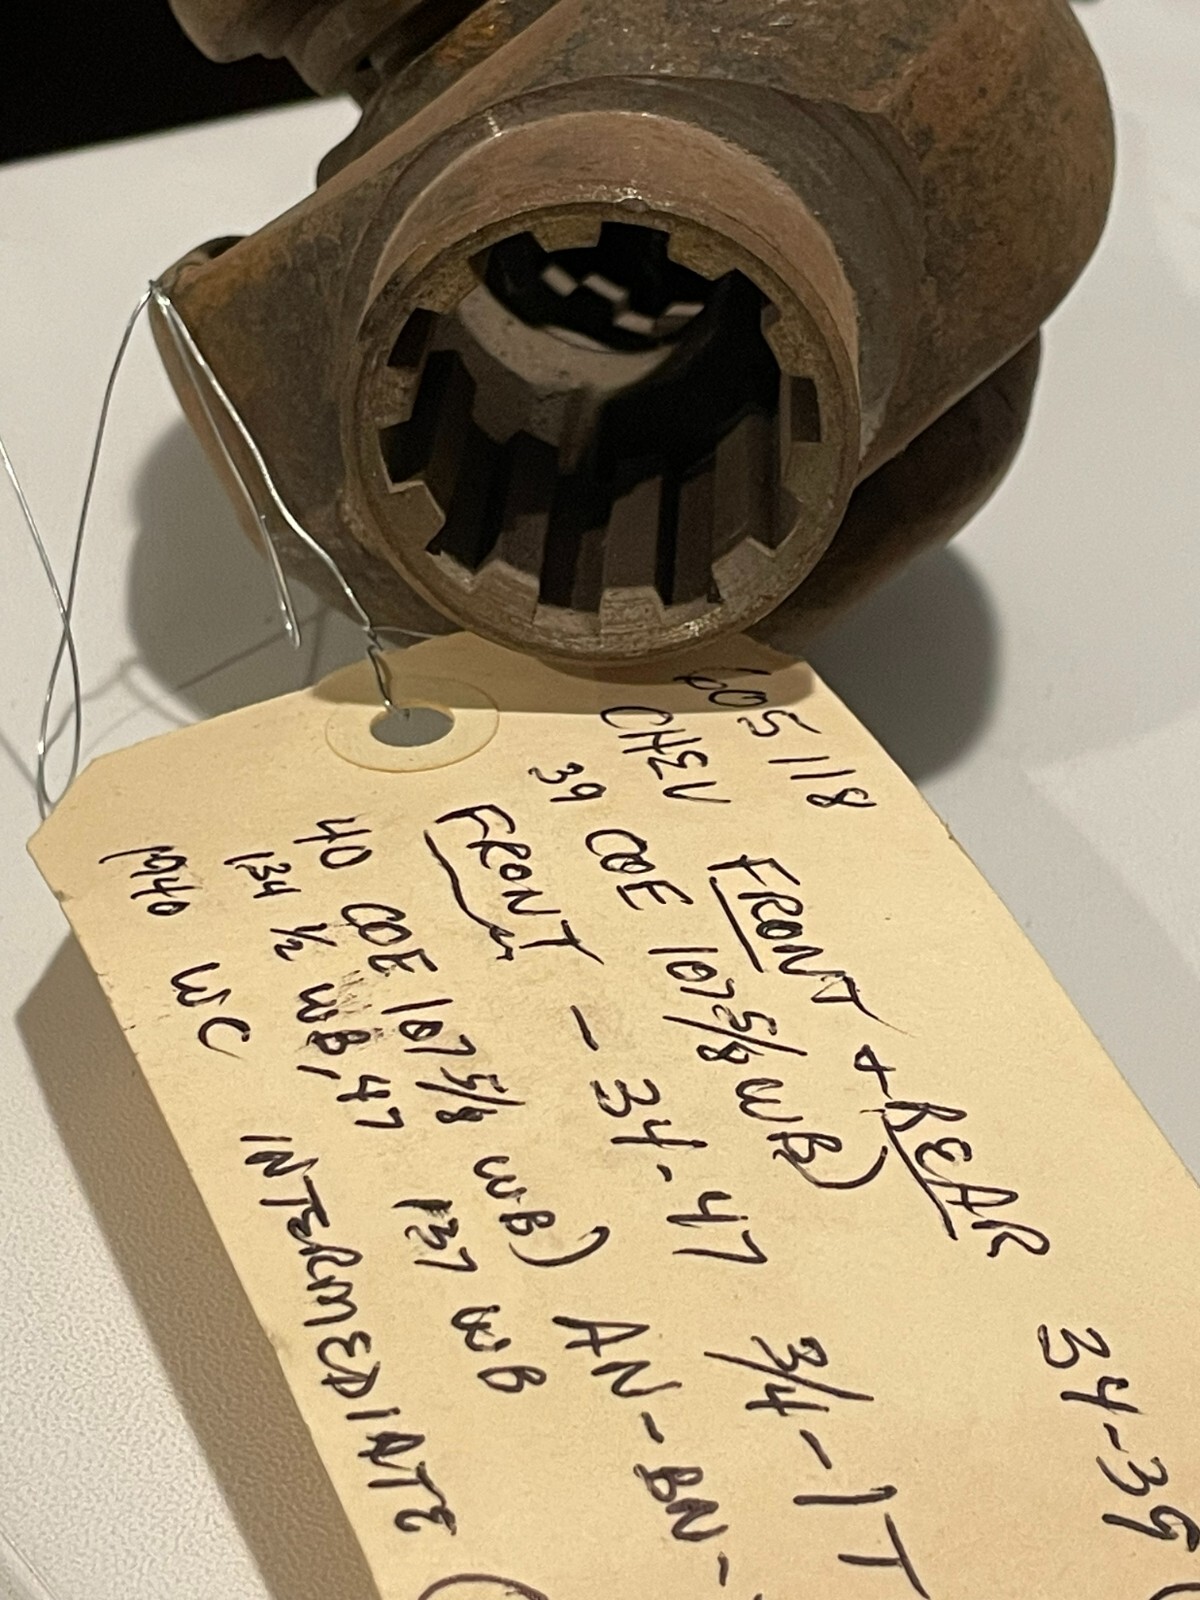 605118 FRONT + REAR 34-39
CHEV
39 COE 107 5/8 WB) 3/4-1T
FRONT - 34-47
40 COE 107 5/8 WB) AN-BN-
134 1/2 WB, 47 137 WB
1940 WC INTERMEDIATE (